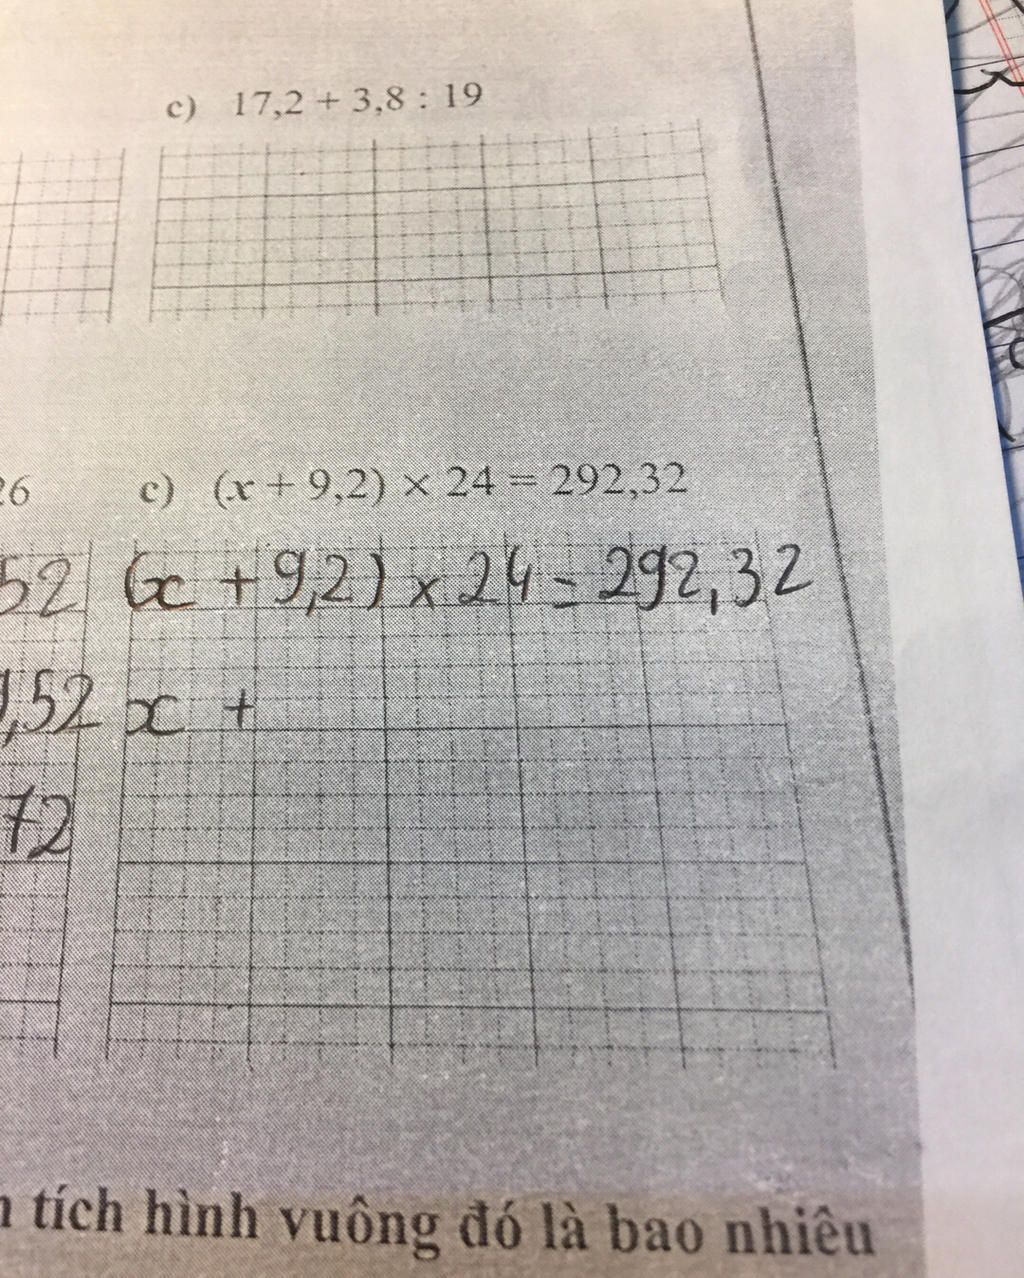 c) 17,2 + 3,8 : 19
26 c) (x + 9,2) × 24 = 292,32
52 (x + 9,2) × 24 = 292,32
,52 x +
72
tích hình vuông đó là bao nhiêu